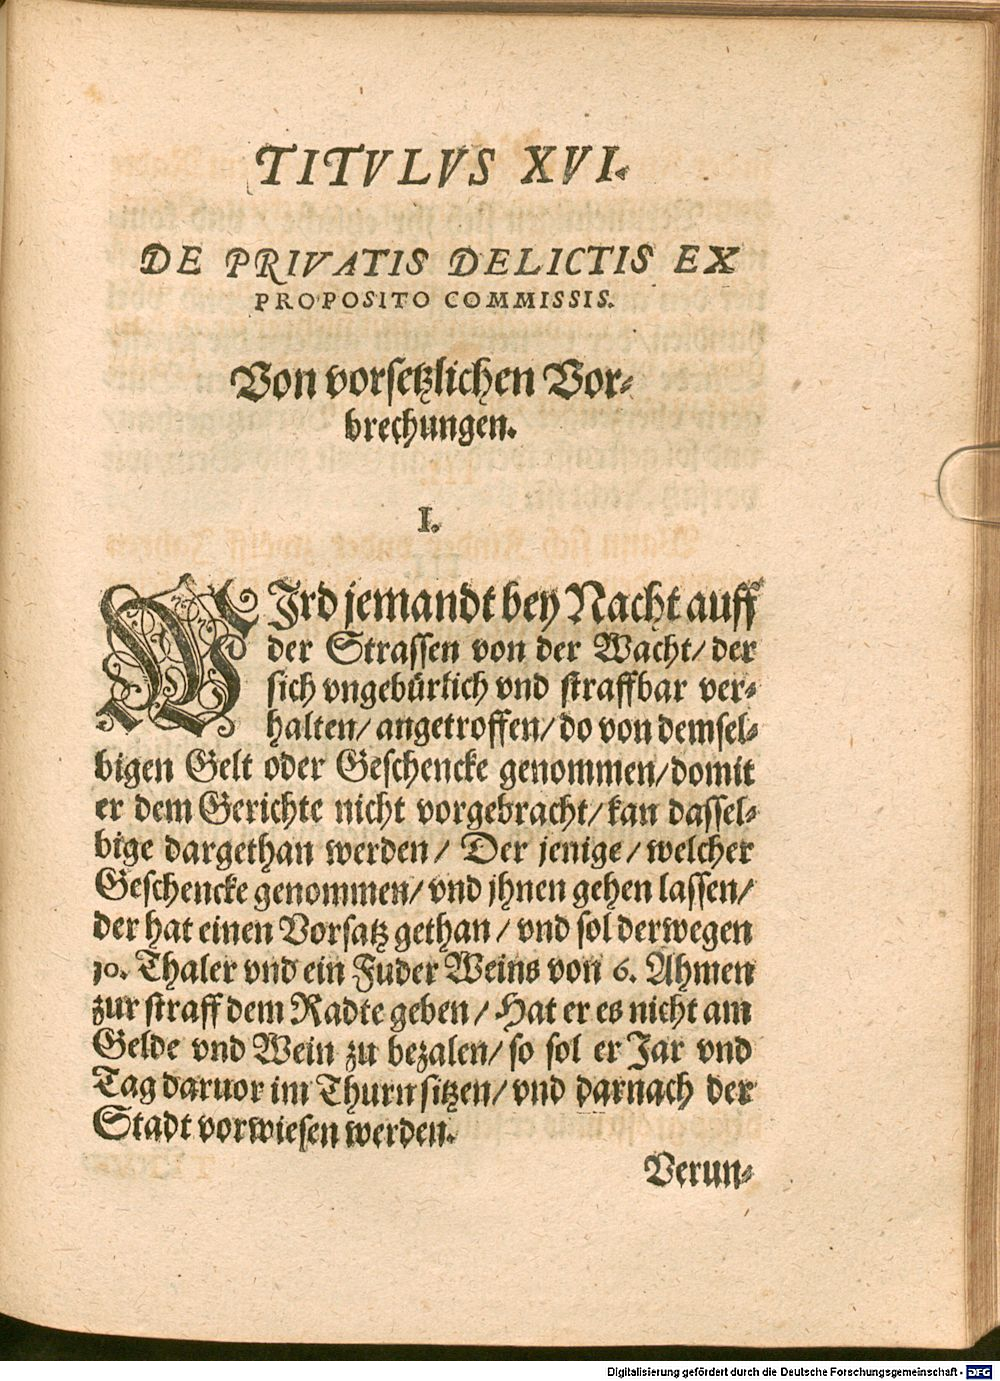 TITVLVS XVI.
DE PRIVATIS DELICTIS EX
PROPOSITO COMMISSIS.
Von vorsetzlichen Vor-
brechungen.
I.
WIrd jemandt bey Nacht auff
der Strassen von der Wacht/ der
sich vngebürlich vnd straffbar ver-
halten/ angetroffen/ do von demsel-
bigen Gelt oder Geschencke genommen/ domit
er dem Gerichte nicht vorgebracht/ kan dassel-
bige dargethan werden/ Der jenige/ welcher
Geschencke genommen/ vnd jhnen gehen lassen/
der hat einen Vorsatz gethan/ vnd sol derwegen
10. Thaler vnd ein Fuder Weins von 6. Ahmen
zur straff dem Radte geben/ Hat er es nicht am
Gelde vnd Wein zu bezalen/ so sol er Jar vnd
Tag daruor im Thurn sitzen/ vnd darnach der
Stadt vorwiesen werden.
Verun-
Digitalisierung gefördert durch die Deutsche Forschungsgemeinschaft - DFG